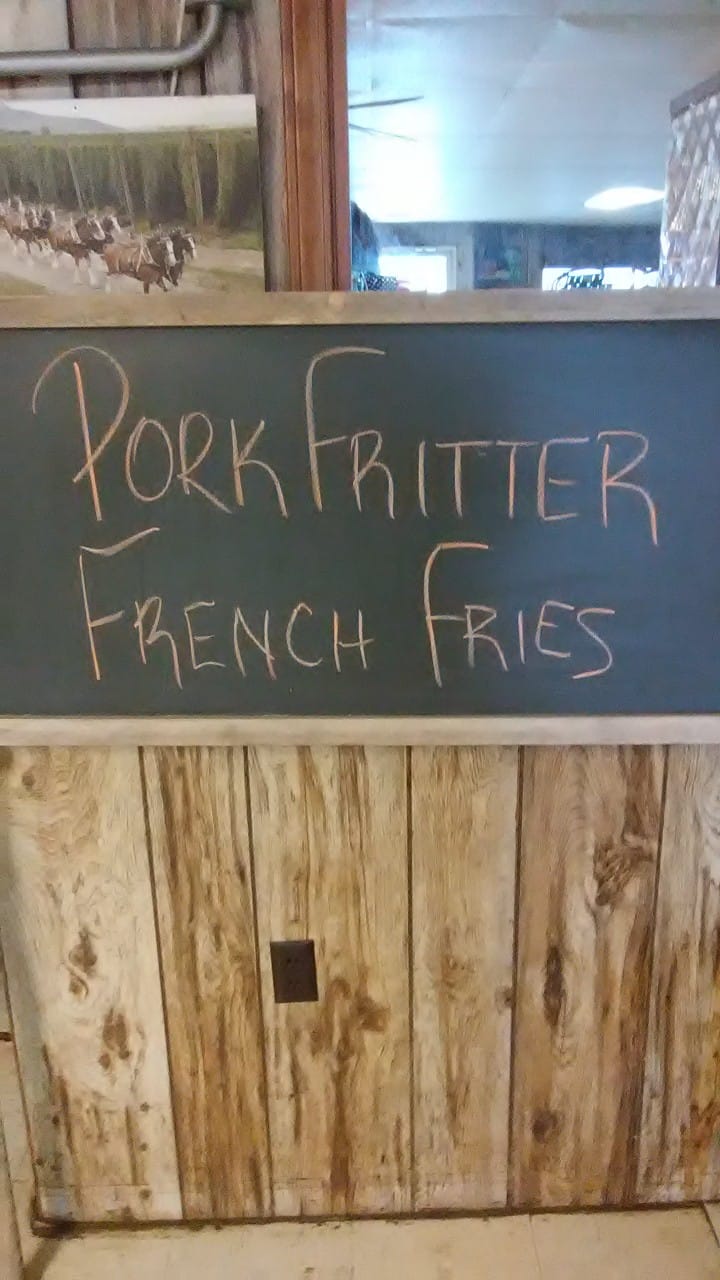 PORK FRITTER
FRENCH FRIES